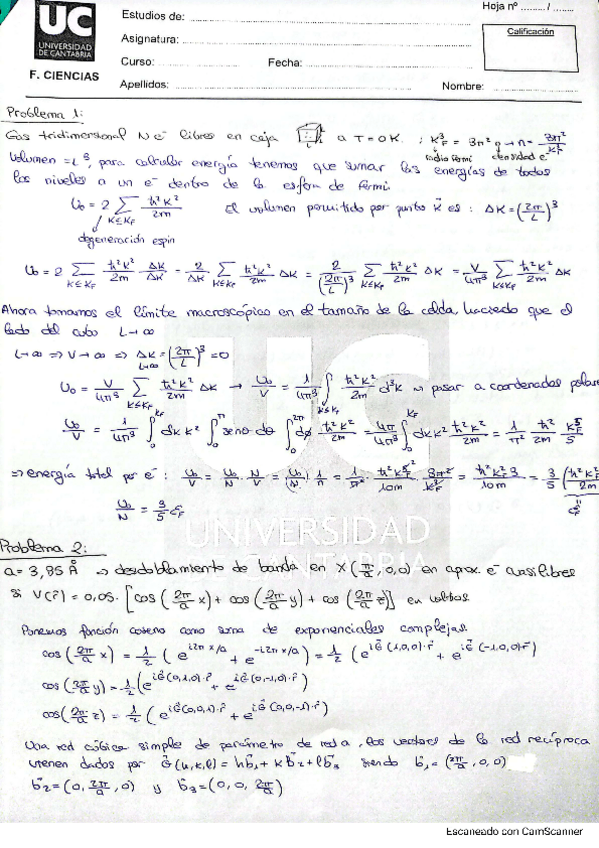 Hoja nº ......... / .........
UC
UNIVERSIDAD
DE CANTABRIA
F. CIENCIAS
Estudios de:
Asignatura:
Curso:
Fecha:
Apellidos:
Nombre:
Calificación
Problema 1:
Gas tridimensional N e⁻ libres en caja a T=0K. ; k_F³ = 3π² n → n = 3π²/k_F³
radio Fermi densidad e⁻
Volumen = L³, para calcular energía tenemos que sumar las energías de todos
los niveles a un e⁻ dentro de la esfera de Fermi.
U₀ = 2 Σ_{k≤k_F} ħ²k²/2m El volumen permitido por punto k⃗ es: Δk = (2π/L)³
degeneración espín
U₀ = 2 Σ_{k≤k_F} ħ²k²/2m Δk/Δk = 2/Δk Σ_{k≤k_F} ħ²k²/2m Δk = 2/(2π/L)³ Σ_{k≤k_F} ħ²k²/2m Δk = V/4π³ Σ_{k≤k_F} ħ²k²/2m Δk
Ahora tomamos el límite macroscópico en el tamaño de la celda, haciendo que el
lado del cubo L→∞
L→∞ ⇒ V→∞ ⇒ Δk_{L→∞} = (2π/L)³ = 0
U₀ = V/4π³ Σ_{k≤k_F} ħ²k²/2m Δk → U₀/V = 1/4π³ ∫_{k≤k_F} ħ²k²/2m d³k → pasar a coordenadas polares
U₀/V = 1/4π³ ∫₀^{k_F} dk k² ∫₀^π senθ dθ ∫₀^{2π} dφ ħ²k²/2m = 4π/4π³ ∫₀^{k_F} dk k² ħ²k²/2m = 1/π² ħ²/2m k_F⁵/5
⇒ energía total por e⁻: U₀/V = U₀/N · N/V = (U₀/N) · 1/n = 1/π² · ħ²k_F⁵/10m · 3π²/k_F³ = ħ²k_F² 3/10m = 3/5 (ħ²k_F²/2m)
U₀/N = 3/5 ε_F
ε_F
UC
UNIVERSIDAD
DE CANTABRIA
Problema 2:
a = 3,85 Å → desdoblamiento de banda en X(π/a, 0, 0) en aprox. e⁻ cuasilibres
si V(r⃗) = 0,05 · [cos(2π/a x) + cos(2π/a y) + cos(2π/a z)] en voltios
Ponemos función coseno como suma de exponenciales complejas
cos(2π/a x) = 1/2 (e^{i2πx/a} + e^{-i2πx/a}) = 1/2 (e^{iG⃗(1,0,0)·r⃗} + e^{iG⃗(-1,0,0)·r⃗})
cos(2π/a y) = 1/2 (e^{iG⃗(0,1,0)·r⃗} + e^{iG⃗(0,-1,0)·r⃗})
cos(2π/a z) = 1/2 (e^{iG⃗(0,0,1)·r⃗} + e^{iG⃗(0,0,-1)·r⃗})
Una red cúbica simple de parámetro de red a, los vectores de la red recíproca
vienen dados por G⃗(h,k,l) = hb⃗₁ + kb⃗₂ + lb⃗₃ siendo b⃗₁ = (2π/a, 0, 0)
b⃗₂ = (0, 2π/a, 0) y b⃗₃ = (0, 0, 2π/a)
Escaneado con CamScanner